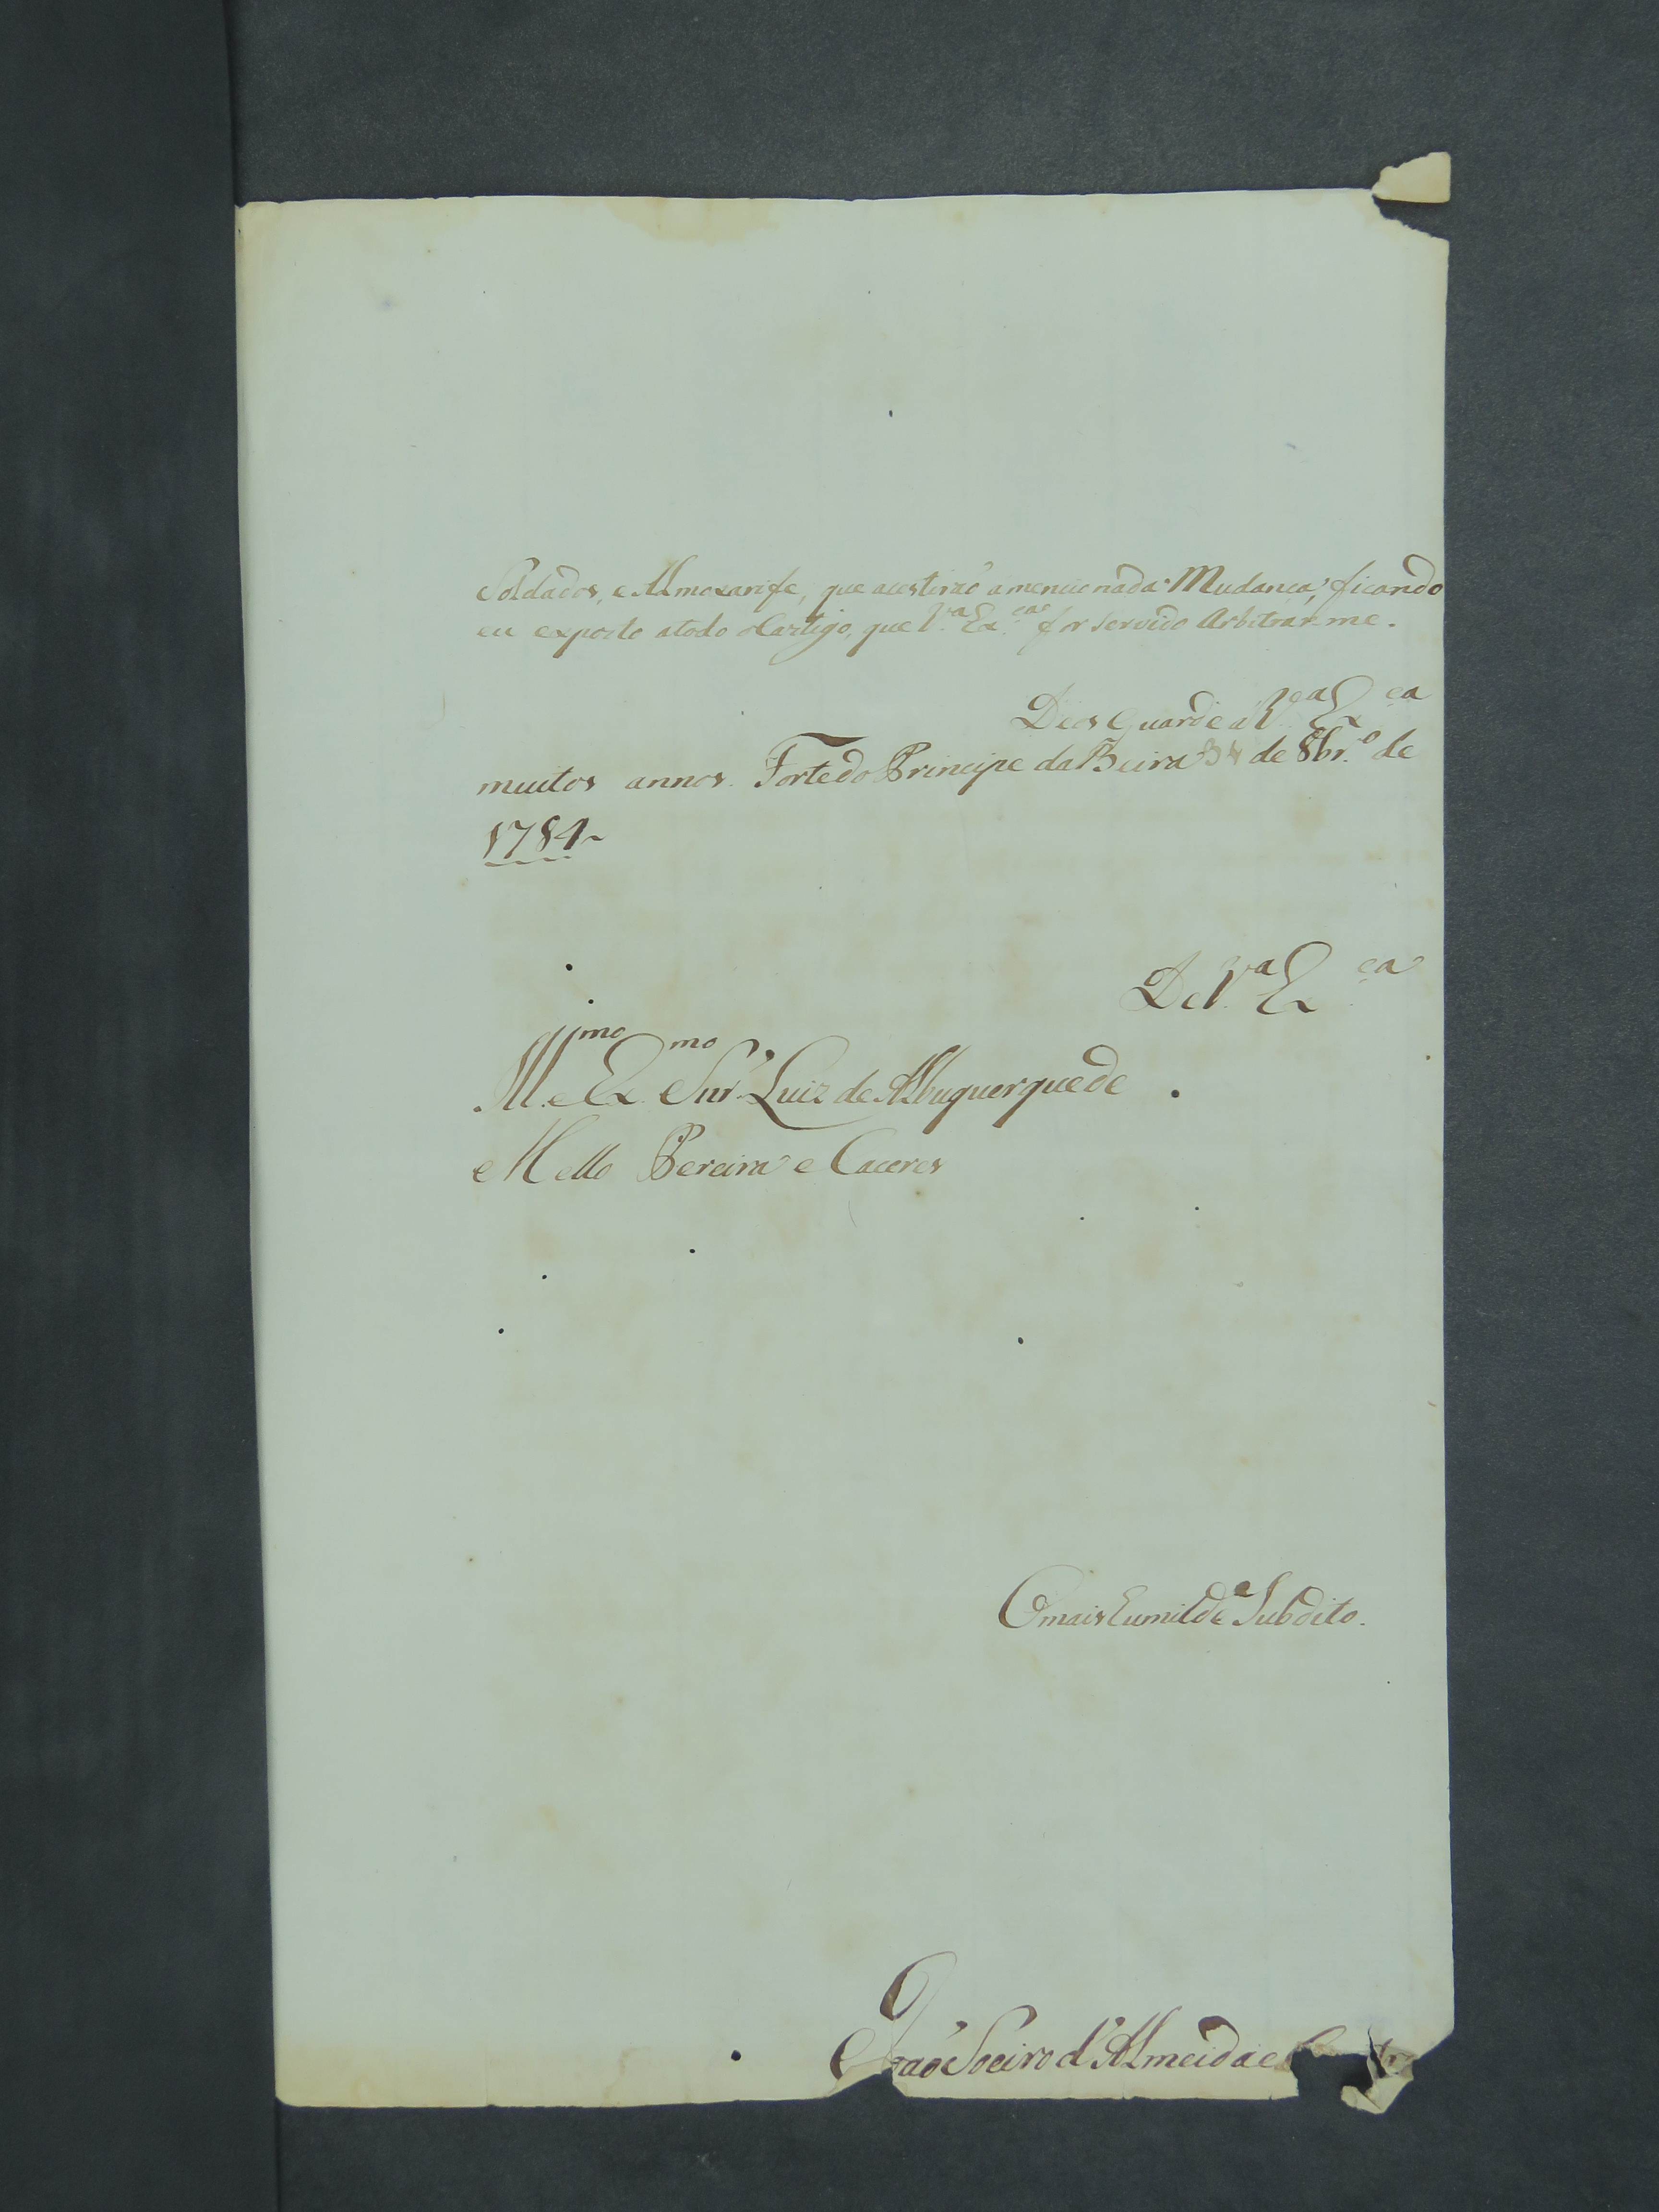 Soldados, e Almoxarife, que acestiraõ amencionada Mudança, ficando
eu exposto atodo oCastigo, que V.ª Ex.ᶜᵃ for Servido Arbitrar-me.
Deos Guarde a V.ª Ex.ᶜᵃ
muitos annos. Forte do Principe da Beira de 8br.º de
1784
De V.ª Ex.ᶜᵃ
Ill.ᵐᵒ e Ex.ᵐᵒ Snr. Luiz de Albuquerque de
e Mello Pereira e Caceres
O mais Eumilde Subdito.
Joaõ Soeiro d'Almeida e